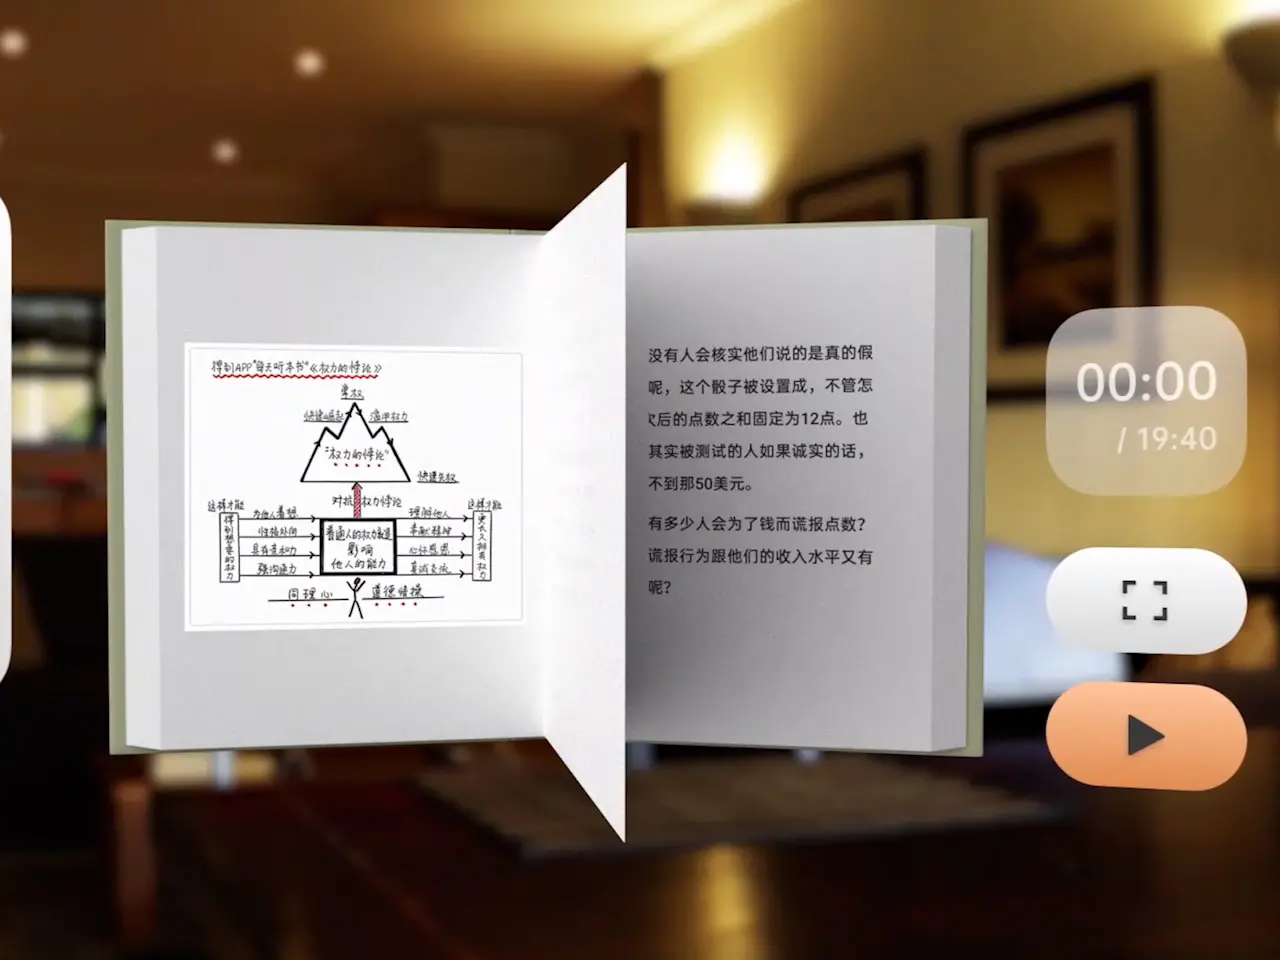 得到APP"每天听本书"《权力的悖论》
掌权
快速崛起
滥用权力
"权力的悖论"
快速失权
对抗权力悖论
这样才能
得到想要的权力
为他人着想
归结外向
具有亲和力
强沟通力
普通人的权力就是
影响
他人的能力
理解他人
奉献精神
心怀感恩
真诚交流
这样才能
更长久拥有权力
同理心
道德情操
没有人会核实他们说的是真的假
呢，这个骰子被设置成，不管怎
后的点数之和固定为12点。也
其实被测试的人如果诚实的话，
不到那50美元。
有多少人会为了钱而谎报点数？
谎报行为跟他们的收入水平又有
呢？
00:00
/ 19:40